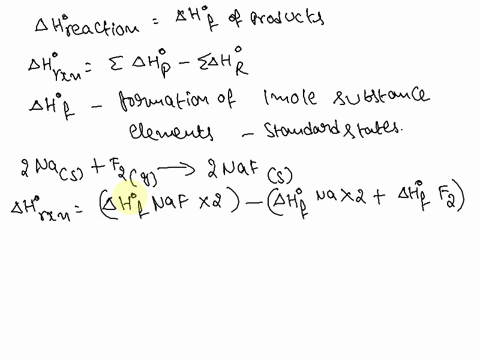 ΔH°reaction = ΔH°f of products
ΔH°rxn = Σ ΔH°P - ΣΔH°R
ΔH°f - formation of 1mole substance
elements - standard states.
2Na(s) + F2(g) → 2NaF(s)
ΔH°rxn = (ΔH°f NaF x2) - (ΔH°f Na x2 + ΔH°f F2)